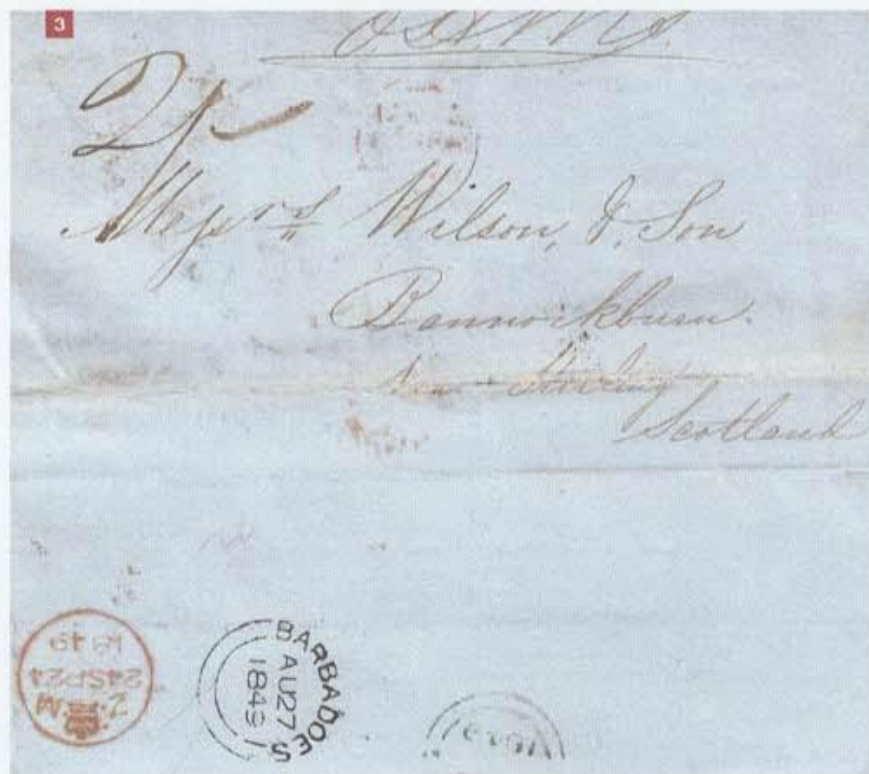 3
2/-
Messrs Wilson, & Son
Bannockburn.
Stirling
Scotland
BARBADOES
AU27
1849
24SP24
1849